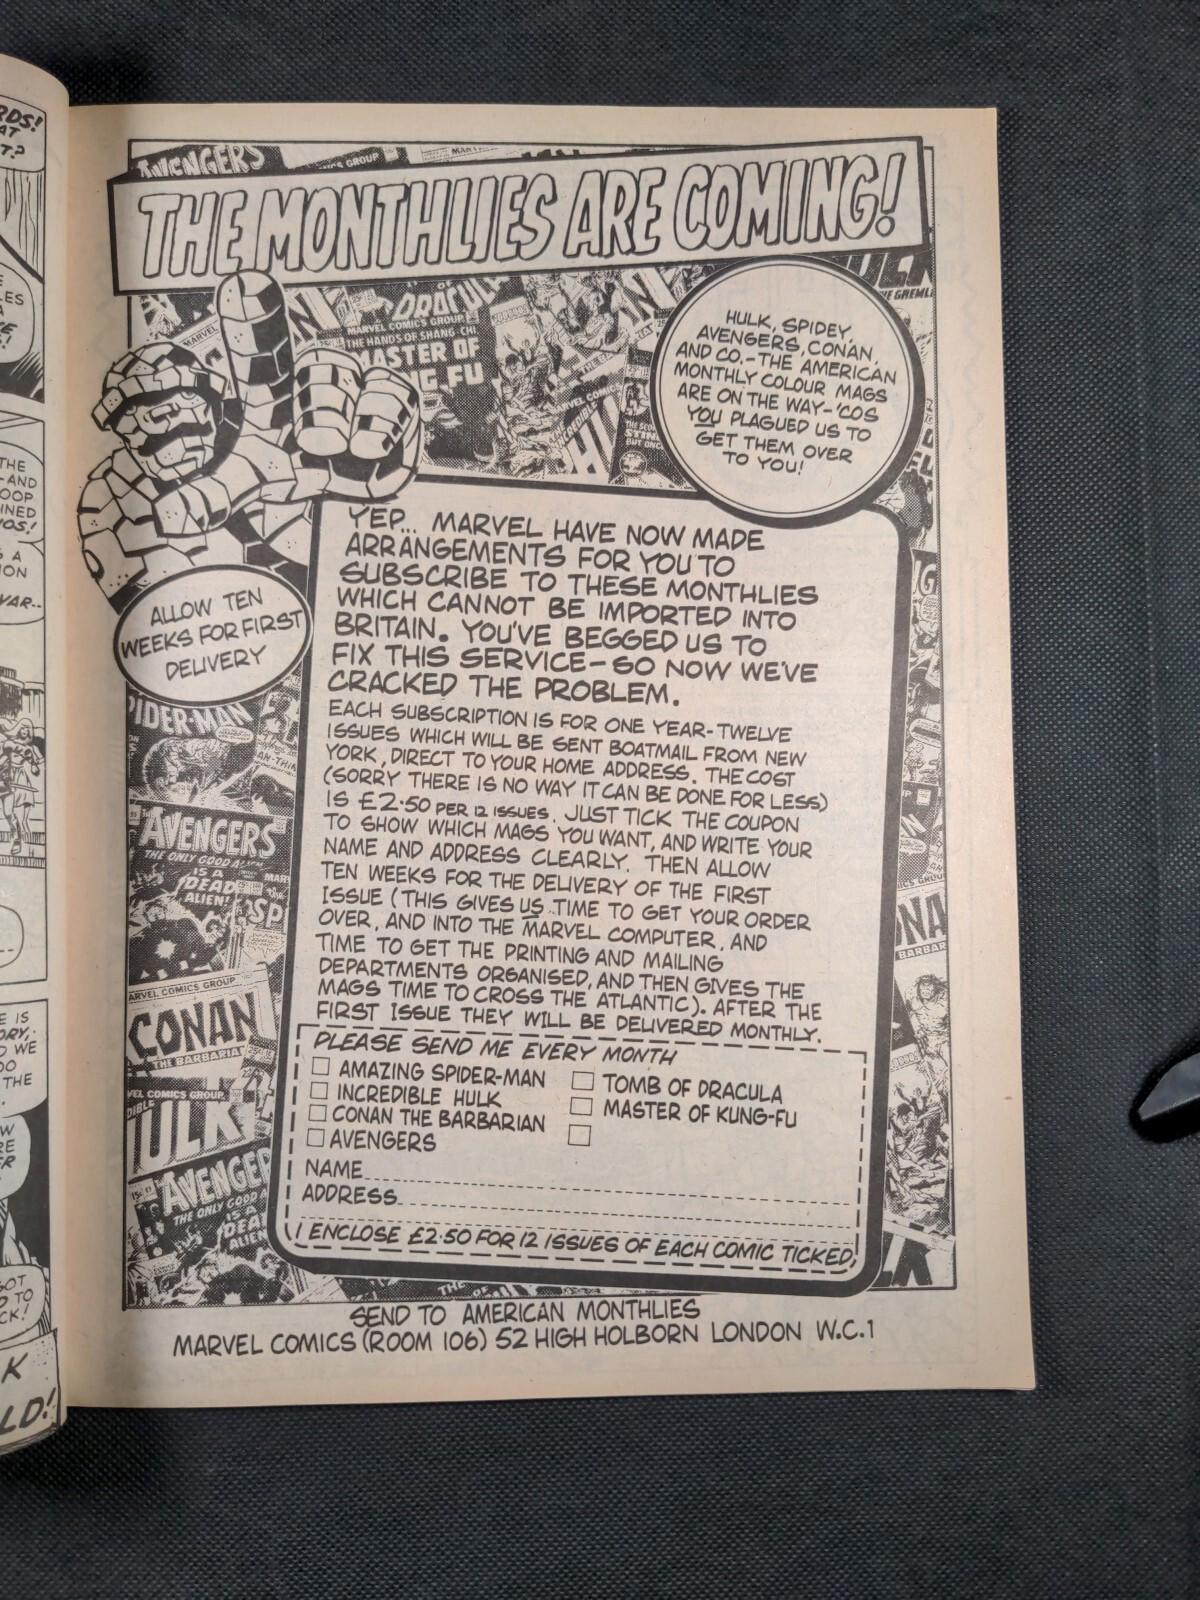 THE MONTHLIES ARE COMING!
HULK, SPIDEY,
AVENGERS, CONAN,
AND CO.-THE AMERICAN
MONTHLY COLOUR MAGS
ARE ON THE WAY-'COS
YOU PLAGUED US TO
GET THEM OVER
TO YOU!
YEP... MARVEL HAVE NOW MADE
ARRANGEMENTS FOR YOU TO
SUBSCRIBE TO THESE MONTHLIES
WHICH CANNOT BE IMPORTED INTO
BRITAIN. YOU'VE BEGGED US TO
FIX THIS SERVICE-SO NOW WE'VE
CRACKED THE PROBLEM.
ALLOW TEN
WEEKS FOR FIRST
DELIVERY
EACH SUBSCRIPTION IS FOR ONE YEAR-TWELVE
ISSUES WHICH WILL BE SENT BOATMAIL FROM NEW
YORK, DIRECT TO YOUR HOME ADDRESS. THE COST
(SORRY THERE IS NO WAY IT CAN BE DONE FOR LESS)
IS £2·50 PER 12 ISSUES. JUST TICK THE COUPON
TO SHOW WHICH MAGS YOU WANT, AND WRITE YOUR
NAME AND ADDRESS CLEARLY. THEN ALLOW
TEN WEEKS FOR THE DELIVERY OF THE FIRST
ISSUE (THIS GIVES US TIME TO GET YOUR ORDER
OVER, AND INTO THE MARVEL COMPUTER, AND
TIME TO GET THE PRINTING AND MAILING
DEPARTMENTS ORGANISED, AND THEN GIVES THE
MAGS TIME TO CROSS THE ATLANTIC). AFTER THE
FIRST ISSUE THEY WILL BE DELIVERED MONTHLY.
PLEASE SEND ME EVERY MONTH
AMAZING SPIDER-MAN
INCREDIBLE HULK
CONAN THE BARBARIAN
AVENGERS
TOMB OF DRACULA
MASTER OF KUNG-FU
NAME
ADDRESS
I ENCLOSE £2·50 FOR 12 ISSUES OF EACH COMIC TICKED.
SEND TO AMERICAN MONTHLIES
MARVEL COMICS (ROOM 106) 52 HIGH HOLBORN LONDON W.C.1
AVENGERS
DRACULA
MARVEL COMICS GROUP
THE HANDS OF SHANG-CHI
MASTER OF
AVENGERS
THE ONLY GOOD ALIEN
IS A
DEAD
ALIEN!
MARVEL COMICS GROUP
CONAN
THE BARBARIAN
HULK
AVENGER
THE ONLY GOOD
IS A